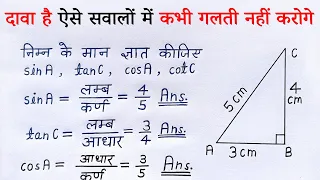 दावा है ऐसे सवालों में कभी गलती नहीं करोगे
निम्न के मान ज्ञात कीजिए
sinA , tanC , cosA , cotC
sinA = लम्ब/कर्ण = 4/5 Ans.
tanC = लम्ब/आधार = 3/4 Ans.
cosA = आधार/कर्ण = 3/5 Ans.
C
5cm
4
cm
A 3cm B